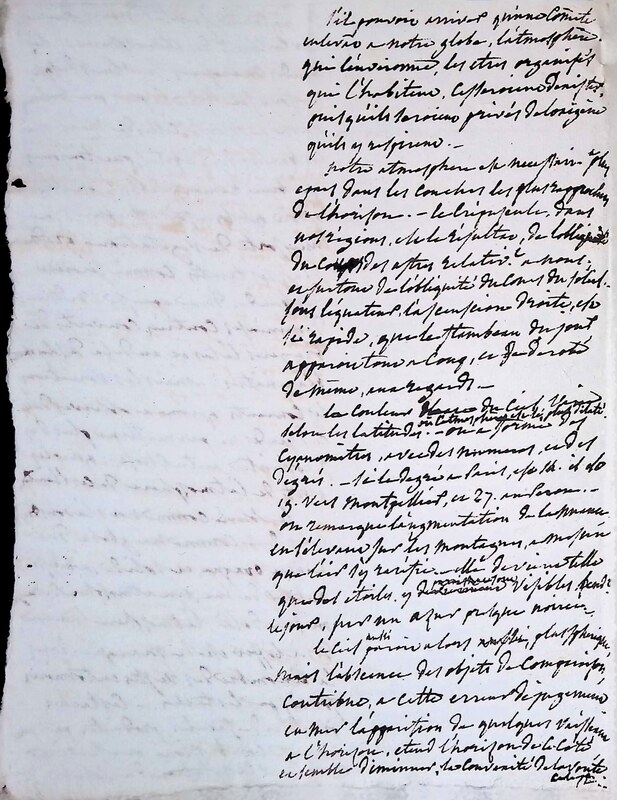 S'il pouvoit arriver qu'une Comète
enleva a notre globe, l'atmosphère
qui l'environne, les etres organisés
qui l'habitent, cesseroient d'exister,
puisqu'ils seroient privés de l'oxigène
qu'ils y respirent. —
Notre atmosphere est necessair.t plus
epais dans les couches les plus rapprochées
de l'horison. — le Crépuscule, dans
nos régions, est le resultat, de l'obliquité
du Cours des astres relativ.t a nous,
et surtout de l'obliquité du Cours du soleil.
sous l'équateur, l'ascension droite, est
si rapide, que le flambeau du jour
apparoit tout a Coup, et se derobe
de même, aux regards. —
la Couleur du Ciel varie
selon les latitudes. ou l'atmosphere est plus dilaté
— on a formé des
Cyanometres, avec des numeros, et des
dégrés. — Si le degré a Paris, est 14. il est
19. vers Montpellier, et 27. au
on remarque l'augmentation de la nuance
en s'elevant sur les montagnes, a mesure
que l'air s'y rarefie. — elle devient telle
que des étoiles, y visibles, pendt
le jour, sur un azur presque noir. —
le Ciel aussi paroit alors, plus spherique,
mais l'absence des objets de Comparaison,
Contribue, a cette erreur de jugement
en mer l'apparition de quelques vaisseaux
a l'horison, etend l'horison de ce Côté
et semble diminuer, la Convexité de la voute
celeste. —